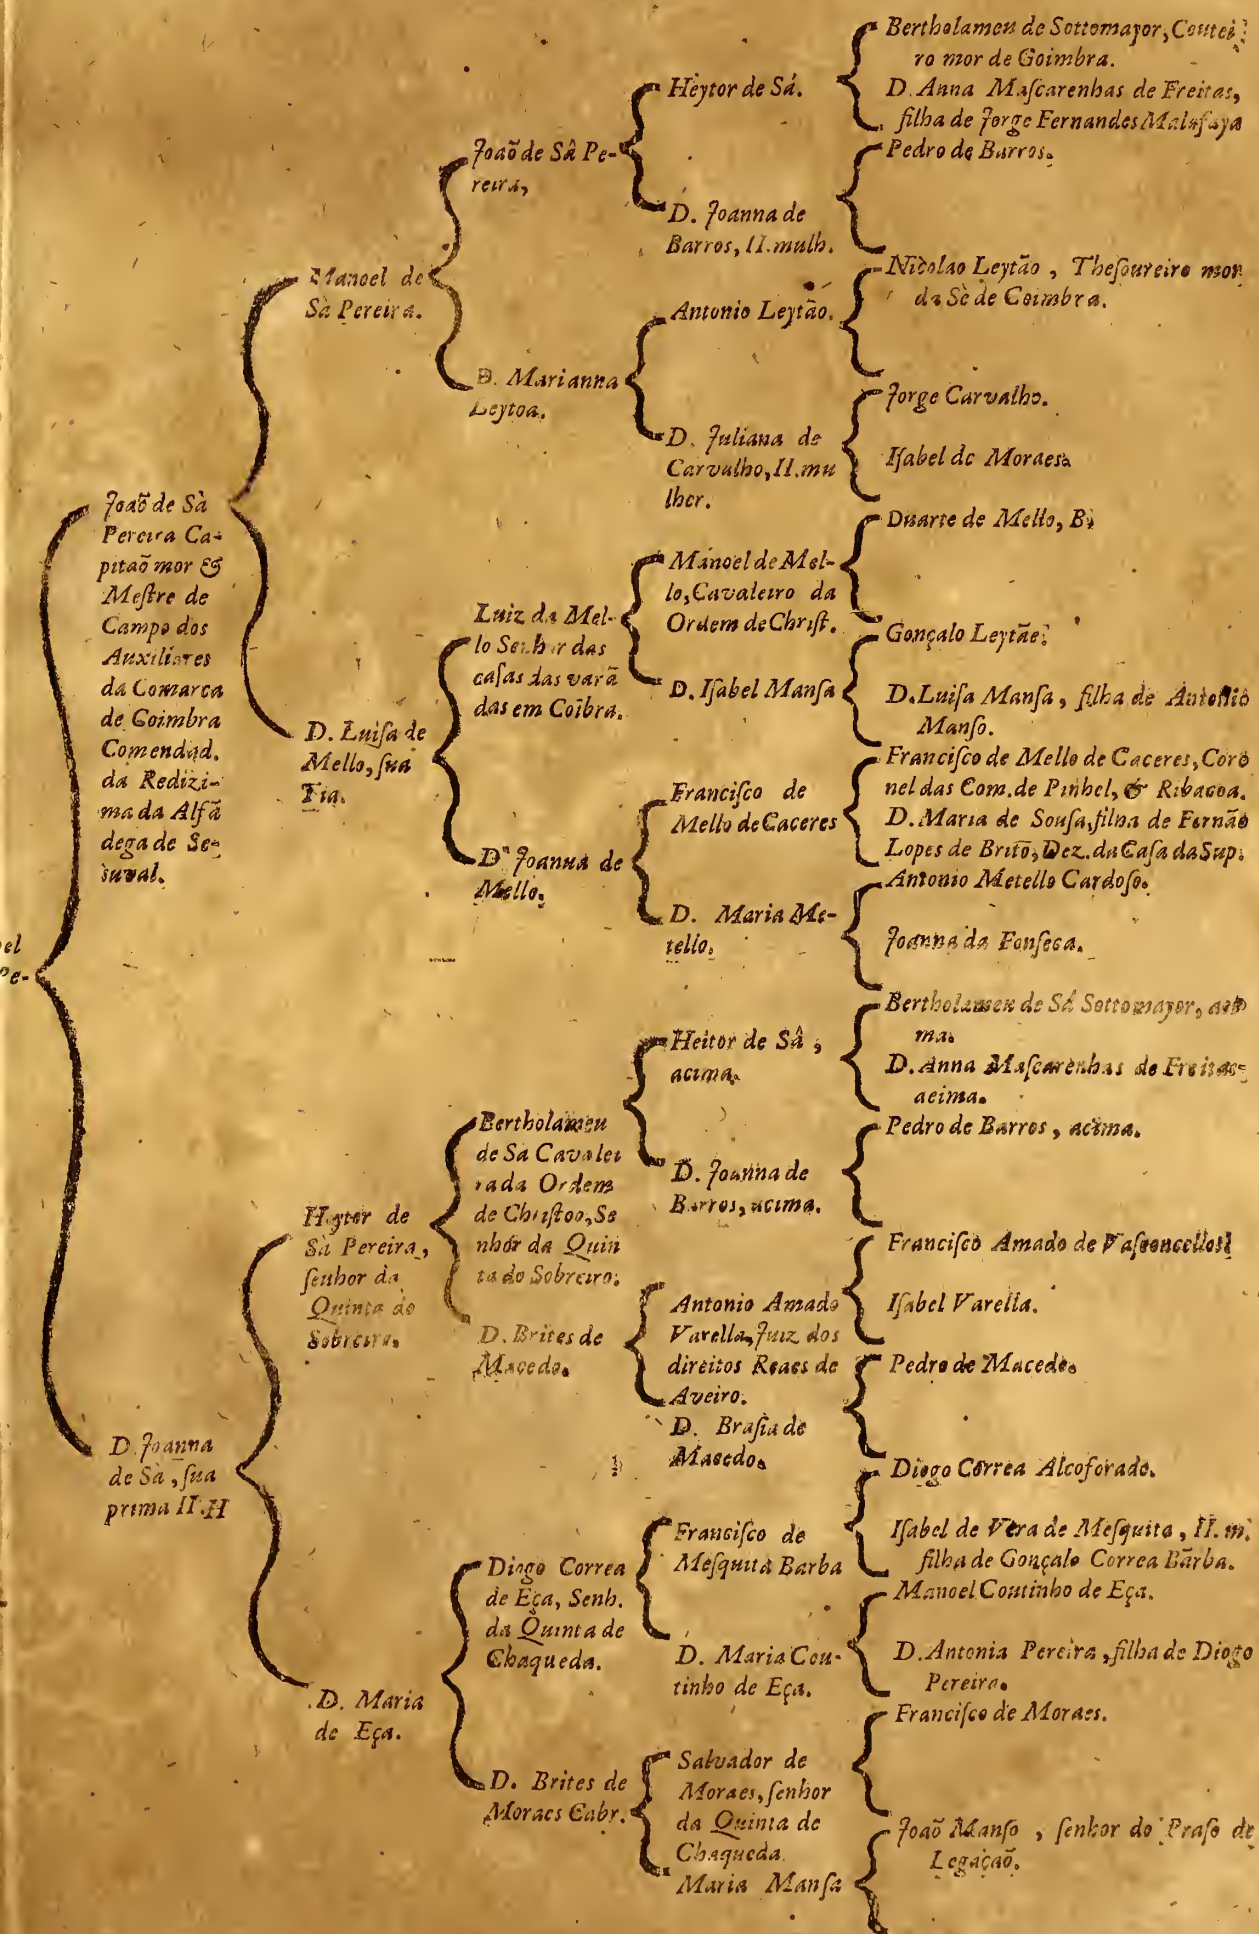 el
Pe-
Joaõ de Sà
Pereira Ca-
pitaõ mor &
Meſtre de
Campo dos
Auxiliares
da Comarca
de Coimbra
Comendad.
da Redizi-
ma da Alfã
dega de Se-
tuval.
D. Joanna
de Sà, ſua
prima II. H
Manoel de
Sà Pereira.
D. Luiſa de
Mello, ſua
Tia.
Heytor de
Sà Pereira,
ſenhor da
Quinta do
Sobreiro.
D. Maria
de Eça.
Joaõ de Sâ Pe-
reira,
D. Marianna
Leytoa.
Luiz da Mel-
lo Senhor das
caſas das varã
das em Coĩbra.
D. Joanna de
Mello.
Bertholameu
de Sa Cavalei
rada Ordem
de Chriſtoo, Se
nhor da Quin
ta do Sobreiro.
D. Brites de
Macedo.
Diogo Correa
de Eça, Senh.
da Quinta de
Chaqueda.
D. Brites de
Moraes Cabr.
Heytor de Sá.
D. Joanna de
Barros, II. mulh.
Antonio Leytão.
D. Juliana de
Carvalho, II. mu
lher.
Manoel de Mel-
lo, Cavaleiro da
Ordem de Chriſt.
D. Iſabel Manſa
Franciſco de
Mello de Caceres
D. Maria Me-
tello.
Heitor de Sâ,
acima.
D. Joanna de
Barros, acima.
Antonio Amado
Varella, Juiz dos
direitos Reaes de
Aveiro.
D. Braſia de
Macedo.
Franciſco de
Meſquita Barba
D. Maria Cou-
tinho de Eça.
Salvador de
Moraes, ſenhor
da Quinta de
Chaqueda.
Maria Manſa
Bertholameu de Sottomayor, Coutei
ro mor de Coimbra.
D. Anna Maſcarenhas de Freitas,
filha de Jorge Fernandes Malafaya
Pedro de Barros.
Nicolao Leytão, Theſoureiro mor
da Sè de Coimbra.
Jorge Carvalho.
Iſabel de Moraes.
Duarte de Mello, B.
Gonçalo Leytãe.
D. Luiſa Manſa, filha de Antonio
Manſo.
Franciſco de Mello de Caceres, Coro
nel das Com. de Pinhel, & Ribacoa.
D. Maria de Souſa, filha de Fernão
Lopes de Brito, Dez. da Caſa da Sup.
Antonio Metello Cardoſo.
Joanna da Fonſeca.
Bertholameu de Sá Sottomayor, aci
ma.
D. Anna Maſcarenhas de Freitas
acima.
Pedro de Barros, acima.
Franciſco Amado de Vaſconcellos
Iſabel Varella.
Pedro de Macedo.
Diogo Correa Alcoforado.
Iſabel de Vera de Meſquita, II. m.
filha de Gonçalo Correa Barba.
Manoel Coutinho de Eça.
D. Antonia Pereira, filha de Diogo
Pereira.
Franciſco de Moraes.
Joaõ Manſo, ſenhor do Praſo de
Legaçaõ.